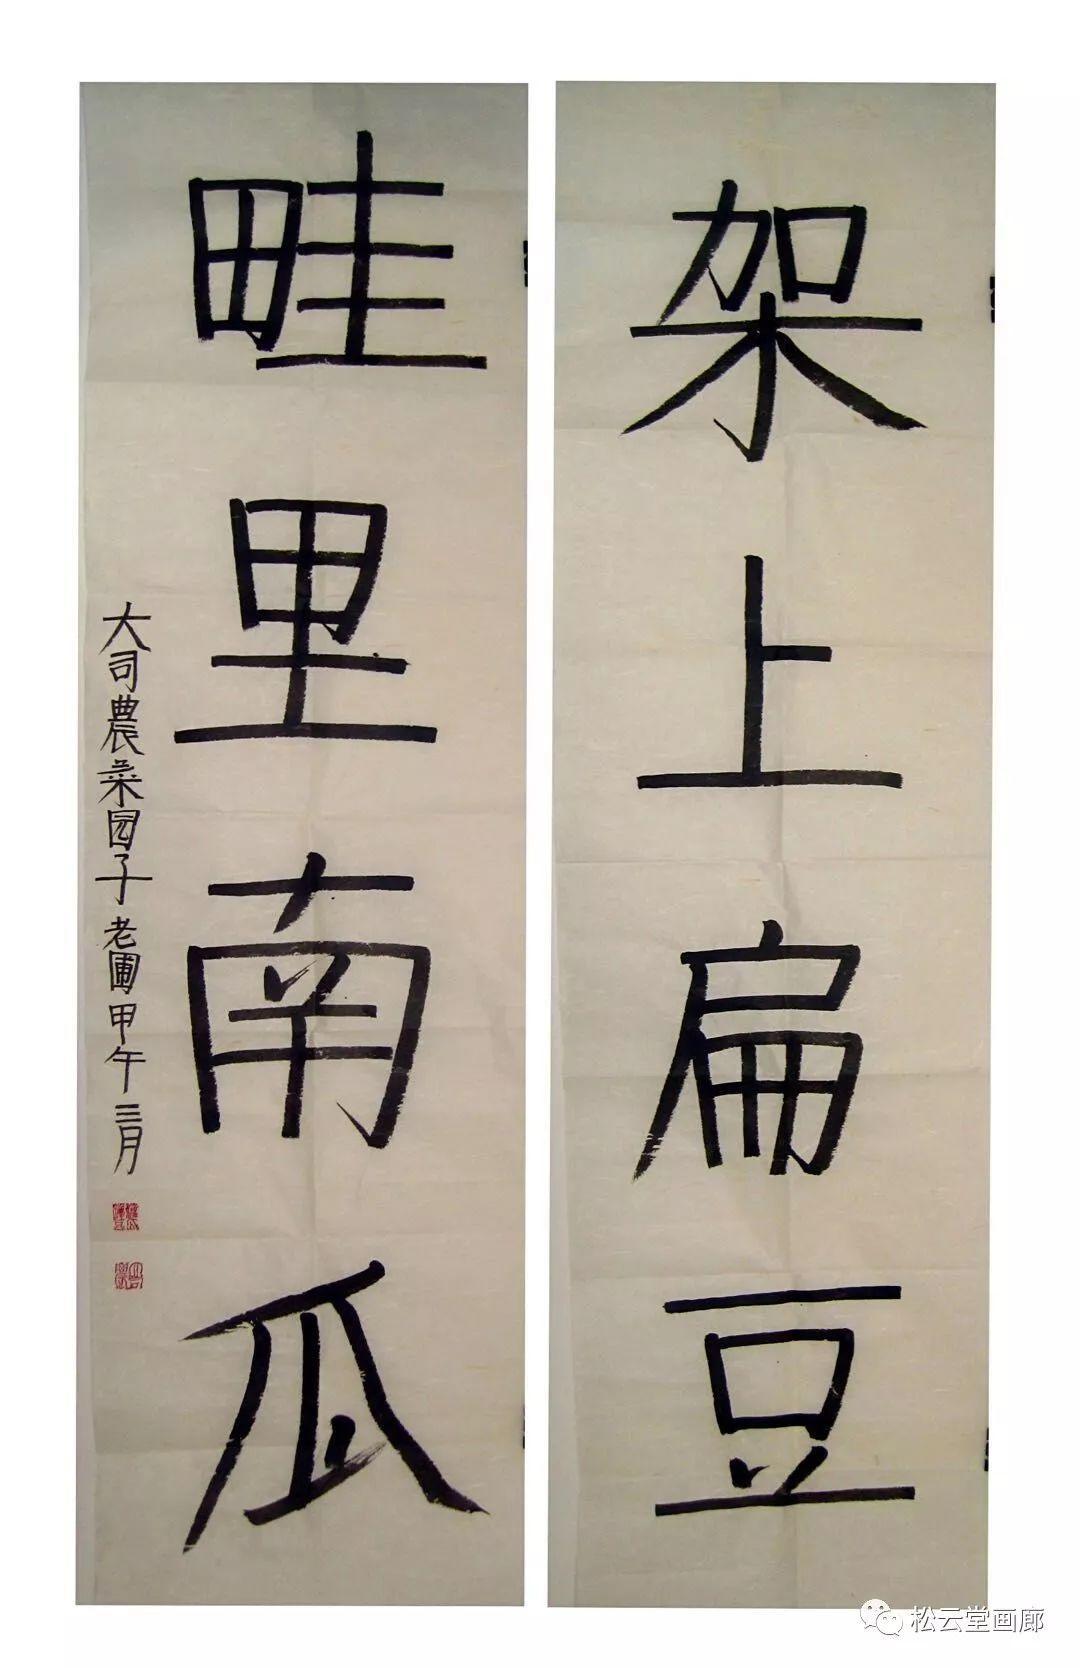 架上扁豆
畦里南瓜
大司農菜园子老圃甲午三月
松云堂画廊